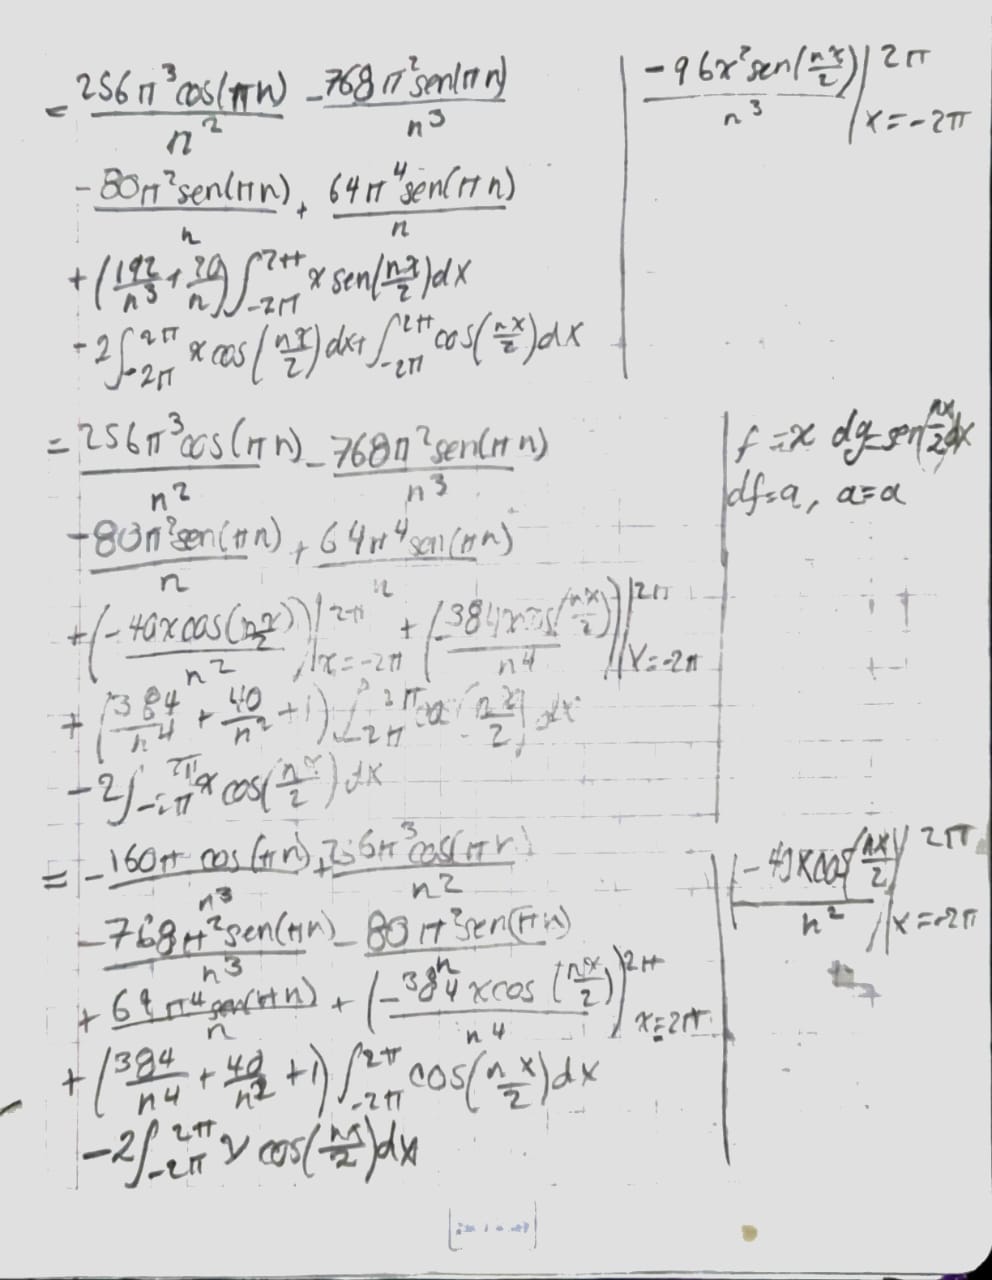 = 256π³cos(πn)/n² - 768π²sen(πn)/n³
- 80π²sen(πn)/n + 64π⁴sen(πn)/n
+ (192/n³ + 20/n) ∫_{-2π}^{2π} x sen(nx/2)dx
- 2∫_{-2π}^{2π} x cos(nx/2)dx + ∫_{-2π}^{2π} cos(nx/2)dx
-96x²sen(nx/2)/n³ |_{x=-2π}^{2π}
= 256π³cos(πn)/n² - 768π²sen(πn)/n³
- 80π²sen(πn)/n + 64π⁴sen(πn)/n
+ (-40xcos(nx/2)/n²)|_{x=-2π}^{2π} + (-384xcos(nx/2)/n⁴)|_{x=-2π}^{2π}
+ (384/n⁴ + 40/n² + 1) ∫_{-2π}^{2π} cos(nx/2)dx
- 2∫_{-2π}^{2π} x cos(nx/2)dx
f=x dg=sen(nx/2)dx
df=a, a=a
= -160π cos(πn)/n³ + 256π³cos(πn)/n²
- 768π²sen(πn)/n³ - 80π²sen(πn)/n
+ 64π⁴sen(πn)/n + (-384xcos(nx/2)/n⁴)^{2π}_{x=2π}
+ (384/n⁴ + 40/n² + 1) ∫_{-2π}^{2π} cos(nx/2)dx
-2∫_{-2π}^{2π} x cos(nx/2)dx
(-40xcos(nx/2)/n² |_{x=-2π}^{2π}